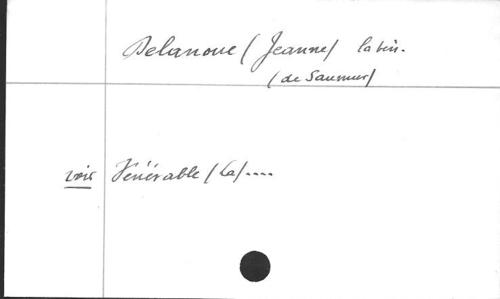 Delanoue (Jeanne)
(de Saumur)
voir Vénérable (La) ....